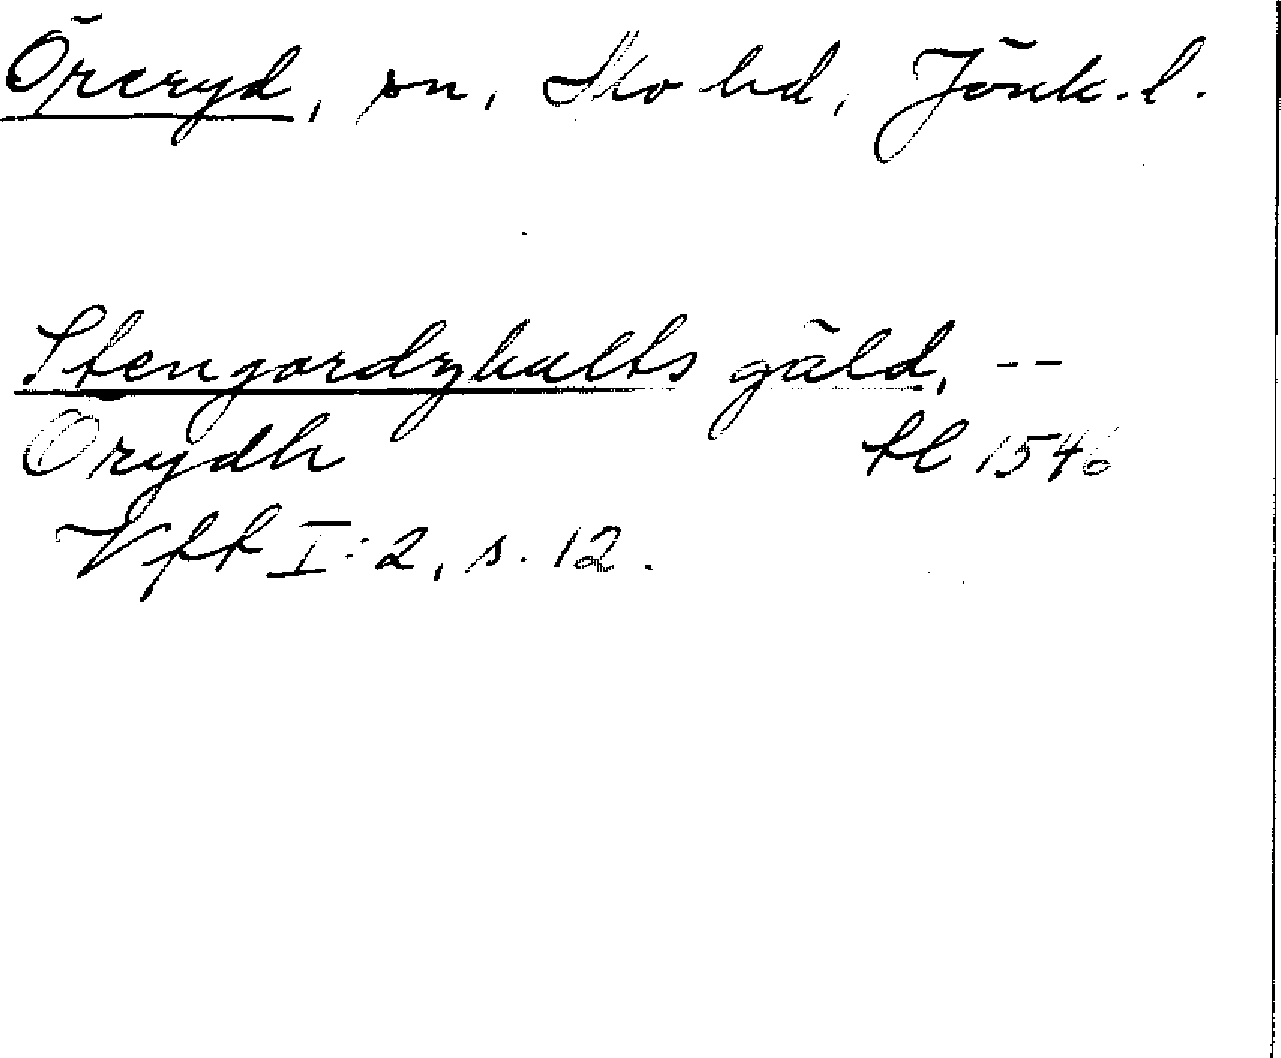 Öreryd, sn, Mo hd, Jönk. l.
Stengordzhults gäld, --
Orydh tl 1546
Vff I:2, s. 12.